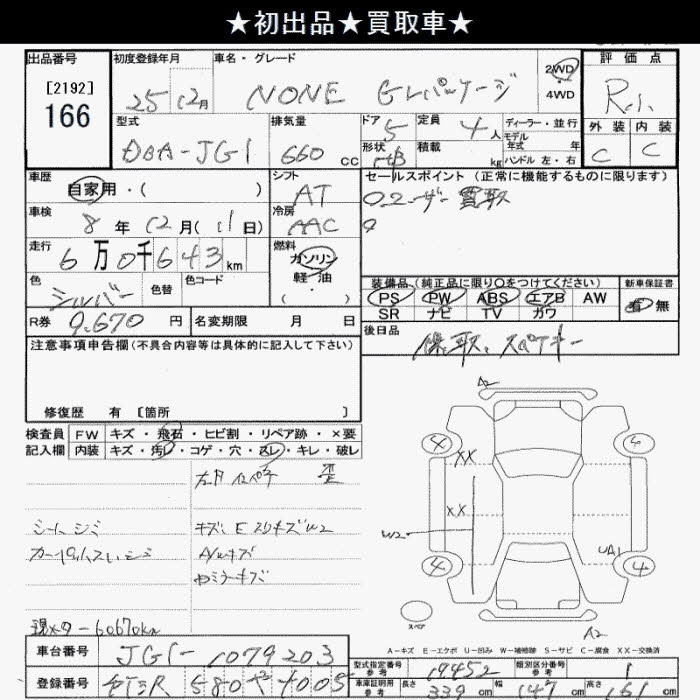 ★初出品★買取車★
出品番号 初度登録年月 車名・グレード 評価点
[2192]
166
25 12月 NONE Gレパッケージ 2WD 4WD R
型式 排気量 ドア 定員 ディーラー・並行
DBA-JG1 660 cc 5 4人 モデル年式 年
形状 積載 kg ハンドル 左・右
外装 内装
C C
車歴 シフト セールスポイント(正常に機能するものに限ります)
自家用・( ) AT 買取
車検 冷房
8年12月(11日) AAC
走行 燃料
6万0千643km ガソリン 軽油・( )
色 色替 色コード
シルバー
装備品(純正品に限り○をつけてください) 新車保証書
PS PW ABS エアB AW 有 無
SR ナビ TV カワ
R券 9,670円 名変期限 月 日
後日品
保、取、スペアキー
注意事項申告欄(不具合内容等は具体的に記入して下さい)
修復歴 有 [箇所 ]
検査員 FW キズ・飛石・ヒビ割・リペア跡・×要
記入欄 内装 キズ・汚れ・コゲ・穴・スレ・キレ・破レ
シートシミ
現メーター60670km
A2
4 4
XX
XX
W2
UA1
4 4
スペア
A2
A-キズ E-エクボ U-凹み W-補修跡 S-サビ C-腐食 XX-交換済
車台番号 JG1-1079203
登録番号 580 や 4005
型式指定番号 参考 19452 類別区分番号 参考 1
車庫証明用 参考 長さ 339cm 幅 147cm 高さ 161cm